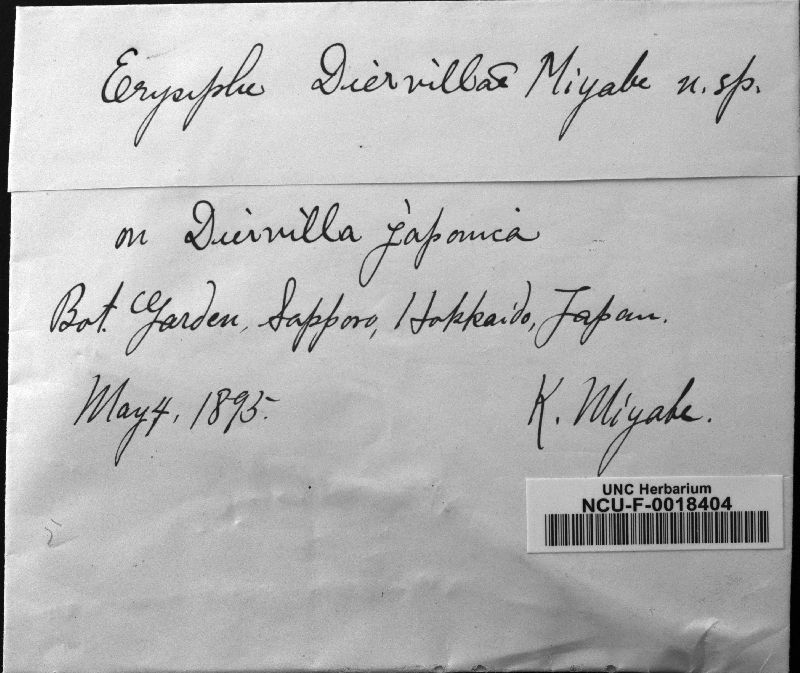 Erysiphe Diervillae Miyabe n. sp.
on Diervilla japonica
Bot. Garden, Sapporo, Hokkaido, Japan.
May 4, 1895.
K. Miyabe.
UNC Herbarium
NCU-F-0018404